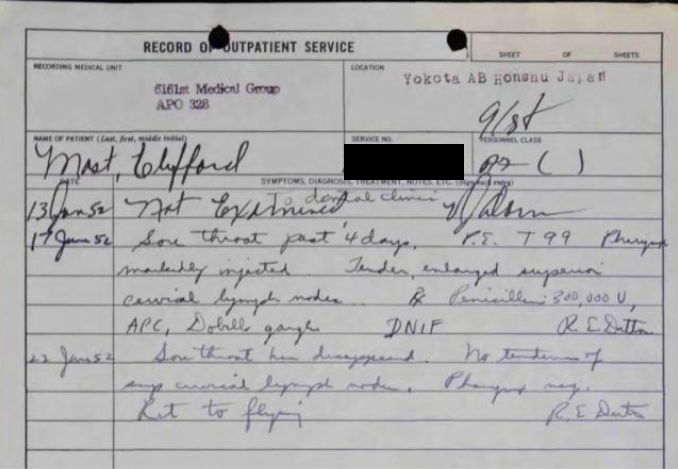 RECORD OF OUTPATIENT SERVICE
SHEET OF SHEETS
RECORDING MEDICAL UNIT
6161st Medical Group
APO 328
LOCATION
Yokota AB Honshu Japan
91st
NAME OF PATIENT (Last, first, middle initial)
Mast, Clifford
SERVICE NO.
PERSONNEL CLASS
( )
DATE
SYMPTOMS, DIAGNOSIS, TREATMENT, NOTES, ETC. (Sign each entry)
To dental clinic
13 Jan 52 Not Examined
17 June 52 Sore throat past 4 days. P.E. T 99 Pharynx
markedly injected. Tender, enlarged superior
cervical lymph nodes. Rx Penicillin 300,000 U,
APC, Dobells gargle DNIF R.E. Dutton
22 June 52 Sore throat has disappeared. No tenderness of
sup cervical lymph nodes. Pharynx neg.
Ret to flying R.E. Dutton